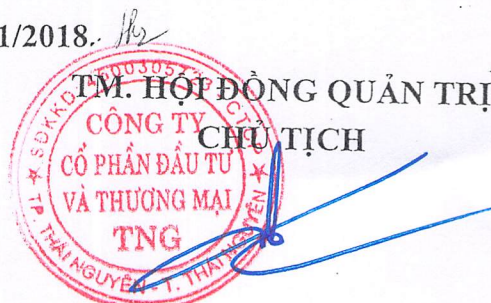 1/2018.
TM. HỘI ĐỒNG QUẢN TRỊ
CHỦ TỊCH
CÔNG TY
CỔ PHẦN ĐẦU TƯ
VÀ THƯƠNG MẠI
TNG
TP. THÁI NGUYÊN - T. THÁI NGUYÊN